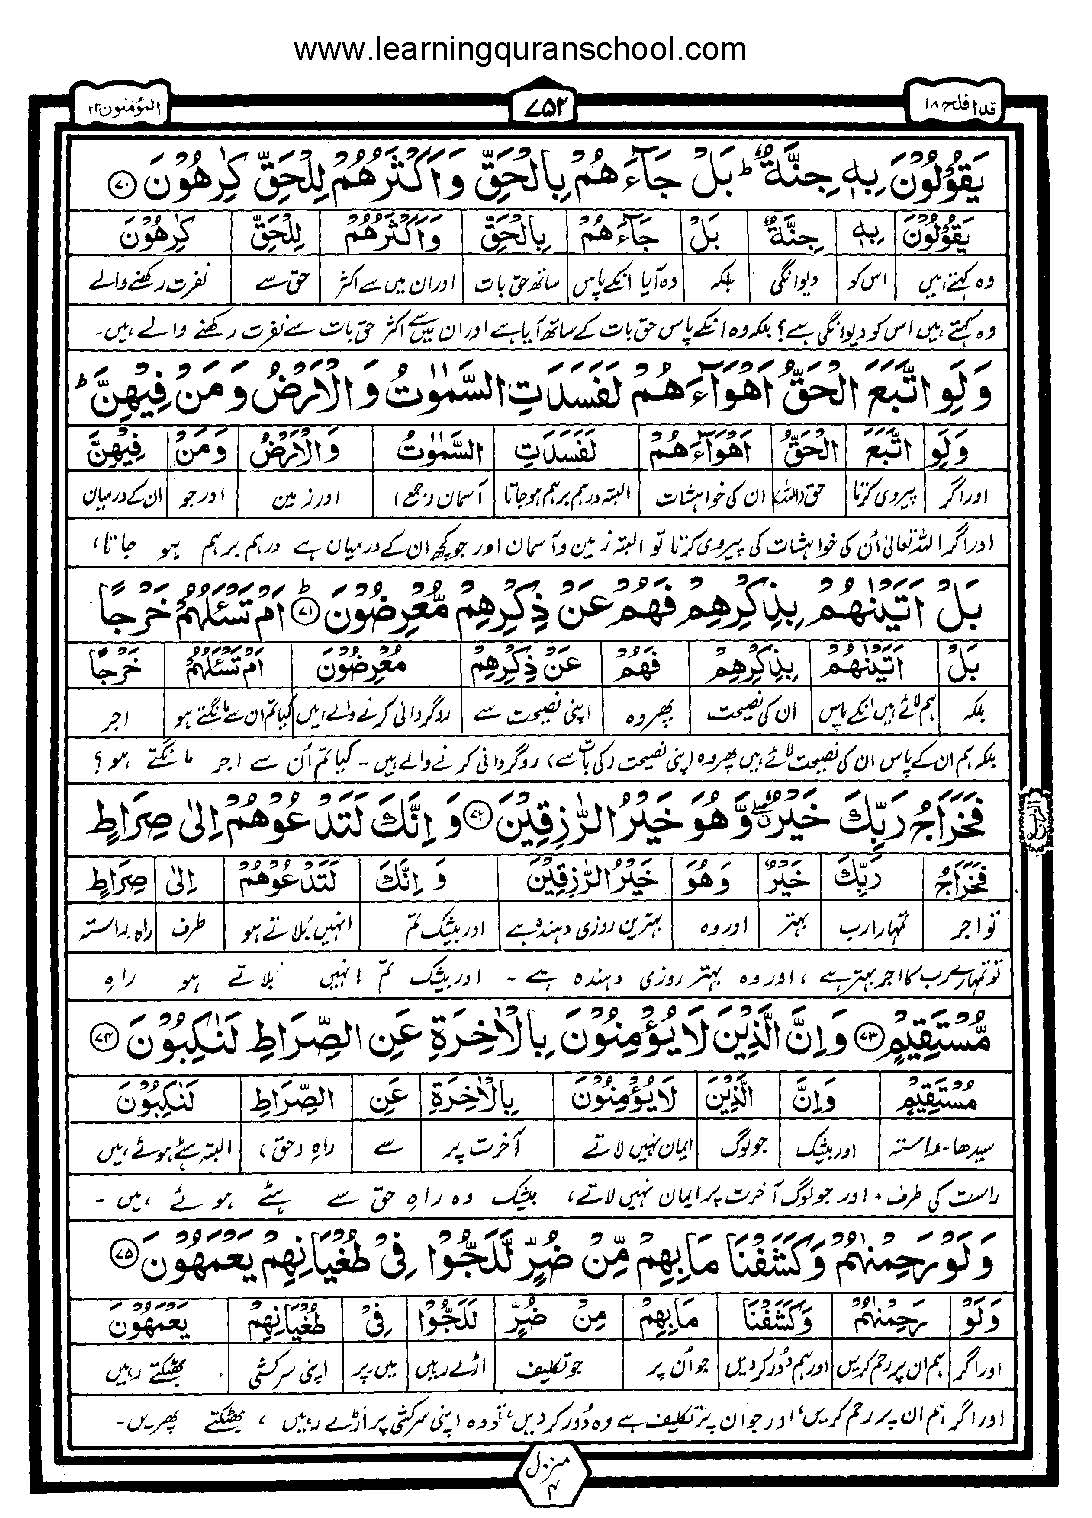 www.learningquranschool.com
قد افلح ۱۸
۷۵۲
المؤمنون ۲۳
يَقُوْلُوْنَ بِهٖ جِنَّةٌ ؕ بَلْ جَآءَهُمْ بِالْحَقِّ وَاَكْثَرُهُمْ لِلْحَقِّ كٰرِهُوْنَ ۷۰
يَقُوْلُوْنَ بِهٖ جِنَّةٌ بَلْ جَآءَهُمْ بِالْحَقِّ وَاَكْثَرُهُمْ لِلْحَقِّ كٰرِهُوْنَ
وہ کہتے ہیں اس کو دیوانگی بلکہ وہ آیا انکے پاس ساتھ حق بات اور ان میں سے اکثر حق سے نفرت رکھنے والے
وہ کہتے ہیں اس کو دیوانگی ہے؟ بلکہ وہ انکے پاس حق بات کے ساتھ آیا ہے اور ان میں سے اکثر حق بات سے نفرت رکھنے والے ہیں۔
وَلَوِ اتَّبَعَ الْحَقُّ اَهْوَآءَهُمْ لَفَسَدَتِ السَّمٰوٰتُ وَالْاَرْضُ وَمَنْ فِيْهِنَّ ؕ
وَلَوِ اتَّبَعَ الْحَقُّ اَهْوَآءَهُمْ لَفَسَدَتِ السَّمٰوٰتُ وَالْاَرْضُ وَمَنْ فِيْهِنَّ
اور اگر پیروی کرتا حق (اللہ) ان کی خواہشات البتہ درہم برہم ہوجاتا آسمان (جمع) اور زمین اور جو ان کے درمیان
اور اگر اللہ تعالیٰ اُن کی خواہشات کی پیروی کرتا تو البتہ زمین و آسمان اور جو کچھ ان کے درمیان ہے درہم برہم ہو جاتا،
بَلْ اَتَيْنٰهُمْ بِذِكْرِهِمْ فَهُمْ عَنْ ذِكْرِهِمْ مُّعْرِضُوْنَ ؕ ۷۱ اَمْ تَسْـَٔلُهُمْ خَرْجًا
بَلْ اَتَيْنٰهُمْ بِذِكْرِهِمْ فَهُمْ عَنْ ذِكْرِهِمْ مُّعْرِضُوْنَ اَمْ تَسْـَٔلُهُمْ خَرْجًا
بلکہ ہم لائے ہیں انکے پاس اُن کی نصیحت پھر وہ اپنی نصیحت سے روگردانی کرنے والے ہیں کیا تم ان سے مانگتے ہو اجر
بلکہ ہم ان کے پاس ان کی نصیحت لائے ہیں پھر وہ اپنی نصیحت (کی بات سے) روگردانی کرنے والے ہیں۔ کیا تم اُن سے اجر مانگتے ہو؟
فَخَرَاجُ رَبِّكَ خَيْرٌ وَّهُوَ خَيْرُ الرّٰزِقِيْنَ ۷۲ وَاِنَّكَ لَتَدْعُوْهُمْ اِلٰى صِرَاطٍ
فَخَرَاجُ رَبِّكَ خَيْرٌ وَهُوَ خَيْرُ الرّٰزِقِيْنَ وَاِنَّكَ لَتَدْعُوْهُمْ اِلٰى صِرَاطٍ
تو اجر تمہارا رب بہتر اور وہ بہترین روزی دہندہ ہے اور بیشک تم انہیں بُلاتے ہو طرف راہ راستہ
تو تمہارے رب کا اجر بہتر ہے، اور وہ بہتر روزی دہندہ ہے۔ اور بیشک تم انہیں بلاتے ہو راہِ
مُّسْتَقِيْمٍ ۷۳ وَاِنَّ الَّذِيْنَ لَا يُؤْمِنُوْنَ بِالْاٰخِرَةِ عَنِ الصِّرَاطِ لَنٰكِبُوْنَ ۷۴
مُّسْتَقِيْمٍ وَاِنَّ الَّذِيْنَ لَا يُؤْمِنُوْنَ بِالْاٰخِرَةِ عَنِ الصِّرَاطِ لَنٰكِبُوْنَ
سیدھا۔ راستہ اور بیشک جو لوگ ایمان نہیں لاتے آخرت پر سے راہ (حق) البتہ ہٹے ہوئے ہیں
راست کی طرف، اور جو لوگ آخرت پر ایمان نہیں لاتے، بیشک وہ راہِ حق سے ہٹے ہوئے ہیں۔
وَلَوْ رَحِمْنٰهُمْ وَكَشَفْنَا مَا بِهِمْ مِّنْ ضُرٍّ لَّلَجُّوْا فِيْ طُغْيَانِهِمْ يَعْمَهُوْنَ ۷۵
وَلَوْ رَحِمْنٰهُمْ وَكَشَفْنَا مَا بِهِمْ مِنْ ضُرٍّ لَلَجُّوْا فِيْ طُغْيَانِهِمْ يَعْمَهُوْنَ
اور اگر ہم ان پر رحم کریں اور ہم دُور کر دیں جو اُن پر جو تکلیف اڑے رہیں میں پر اپنی سرکشی بھٹکتے رہیں
اور اگر ہم ان پر رحم کریں، اور جو ان پر تکلیف ہے وہ دُور کر دیں، تو وہ اپنی سرکشی پر اڑے رہیں، بھٹکتے پھریں۔
منزل ۴